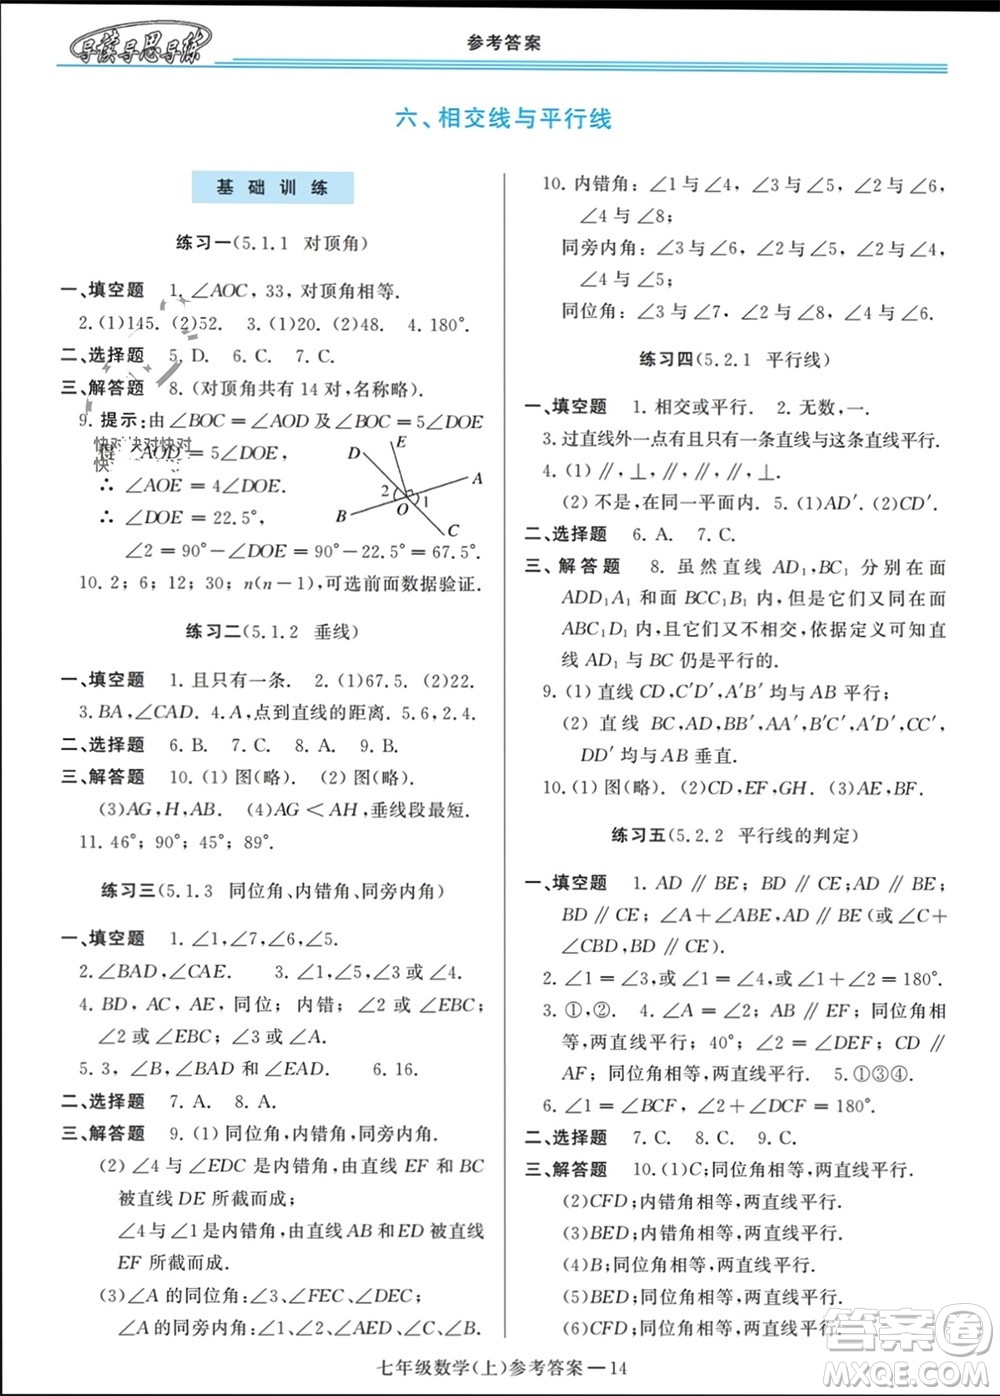 导读导思导练
参考答案
六、相交线与平行线
基础训练
练习一(5.1.1 对顶角)
一、填空题 1. ∠AOC, 33, 对顶角相等.
2. (1)145. (2)52. 3. (1)20. (2)48. 4. 180°.
二、选择题 5. D. 6. C. 7. C.
三、解答题 8. (对顶角共有 14 对,名称略).
9. 提示:由∠BOC=∠AOD 及∠BOC=5∠DOE
得∠AOD=5∠DOE.
快对快对快对
快
∴ ∠AOE=4∠DOE.
∴ ∠DOE=22.5°,
∠2=90°-∠DOE=90°-22.5°=67.5°.
D E A 2 1 O B C
10. 2; 6; 12; 30; n(n-1),可选前面数据验证.
练习二(5.1.2 垂线)
一、填空题 1. 且只有一条. 2. (1)67.5. (2)22.
3. BA,∠CAD. 4. A,点到直线的距离. 5. 6, 2.4.
二、选择题 6. B. 7. C. 8. A. 9. B.
三、解答题 10. (1) 图(略). (2) 图(略).
(3)AG,H,AB. (4)AG<AH,垂线段最短.
11. 46°; 90°; 45°; 89°.
练习三(5.1.3 同位角、内错角、同旁内角)
一、填空题 1. ∠1,∠7,∠6,∠5.
2. ∠BAD,∠CAE. 3. ∠1,∠5,∠2 或∠4.
4. BD, AC, AE, 同位; 内错; ∠2 或∠EBC;
∠2 或∠EBC;∠3 或∠A.
5. 3, ∠B, ∠BAD 和∠EAD. 6. 16.
二、选择题 7. A. 8. A.
三、解答题 9. (1) 同位角,内错角,同旁内角.
(2) ∠4 与∠EDC 是内错角,直线 EF 和 BC
被直线 DE 所截而成;
∠4 与∠1 是内错角,由直线 AB 和 ED 被直线
EF 所截而成.
(3) ∠A 的同位角:∠3、∠FEC、∠DEC;
∠A 的同旁内角:∠1、∠2、∠AED、∠B、∠C.
10. 内错角:∠1 与∠7, ∠5 与∠3, ∠2 与∠6,
∠4 与∠8;
同旁内角:∠3 与∠6, ∠2 与∠7, ∠2 与∠3,
∠4 与∠5;
同位角:∠3 与∠7, ∠2 与∠8, ∠4 与∠6.
练习四(5.2.1 平行线)
一、填空题 1. 相交或平行. 2. 无数,一.
3. 过直线外一点有且只有一条直线与这条直线平行.
4. (1) ∥,⊥,⊥,∥,∥,⊥.
(2) 不是,在同一平面内. 5. (1)AD′. (2)CD′.
二、选择题 6. A. 7. C.
三、解答题 8. 虽然直线 AD₁, BC₁ 分别在面
ADD₁A₁ 和面 BCC₁B₁ 内,但是它们又同在面
ABC₁D₁ 内,且它们又不相交,依据定义可知直
线 AD₁ 与 BC 仍是平行的.
9. (1) 直线 CD,C′D′,A′B′均与 AB 平行;
(2) 直线 BC,AD,BB′,AA′,B′C′,A′D′,CC′,
DD′均与 AB 垂直.
10. (1) 图(略). (2)CD,EF,GH. (3)AE,BF.
练习五(5.2.2 平行线的判定)
一、填空题 1. AD∥BE; BD∥CE;AD∥BE,
BD∥CE;∠A+∠ABE,AD∥BE(或∠C+
∠CBD,BD∥CE).
2. ∠1=∠3,或∠1=∠4,或∠1+∠2=180°.
3. ①,②. 4. ∠A=∠2; AB∥EF; 同位角相
等,两直线平行; 40°; ∠2=∠DFE, CD∥
AF; 同位角相等,两直线平行. 5. ①③④.
6. ∠B=∠BCF, ∠2+∠DCF=180°.
二、选择题 7. C. 8. C. 9. C.
三、解答题 10. (1)C;同位角相等,两直线平行.
(2)CFD;内错角相等,两直线平行.
(3)BED;内错角相等,两直线平行.
(4)B;同位角相等,两直线平行.
(5)BED;同位角相等,两直线平行.
(6)CFD;同位角相等,两直线平行.
七年级数学(上)参考答案—14
答案圈
MXQE.COM